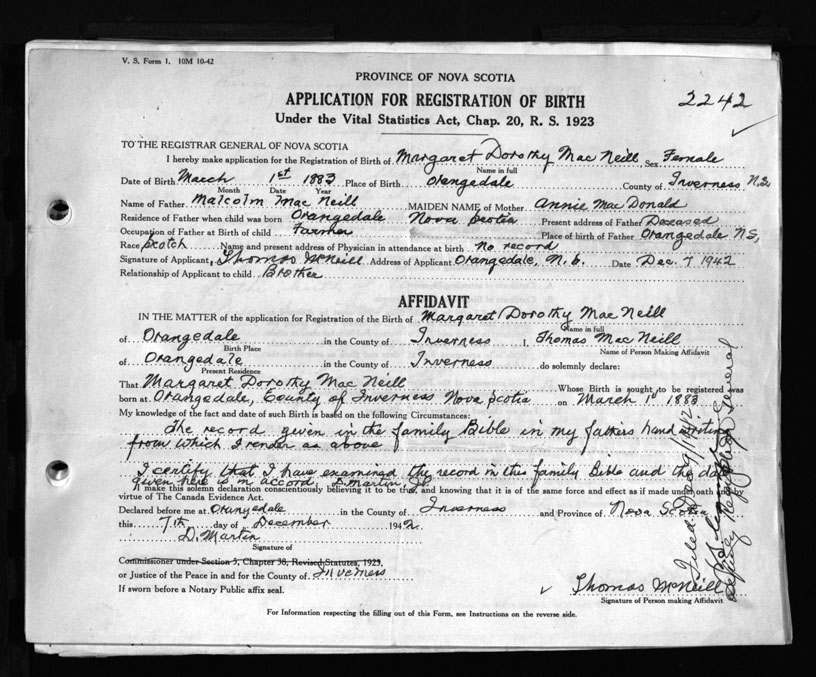 V. S. Form 1. 10M 10-42
PROVINCE OF NOVA SCOTIA
APPLICATION FOR REGISTRATION OF BIRTH
2242
Under the Vital Statistics Act, Chap. 20, R. S. 1923
TO THE REGISTRAR GENERAL OF NOVA SCOTIA
I hereby make application for the Registration of Birth of Margaret Dorothy Mac Neill, Sex Female
Name in full
Date of Birth March 1st 1883 Place of Birth Orangedale County of Inverness N.S.
Month Date Year
Name of Father Malcolm Mac Neill MAIDEN NAME of Mother Annie Mac Donald
Residence of Father when child was born Orangedale Nova Scotia Present address of Father Deceased
Occupation of Father at Birth of child Farmer Place of birth of Father Orangedale N.S,
Race Scotch Name and present address of Physician in attendance at birth No record
Signature of Applicant, Thomas McNeill Address of Applicant Orangedale, N.S. Date Dec. 7 1942
Relationship of Applicant to child Brother
AFFIDAVIT
IN THE MATTER of the application for Registration of the Birth of Margaret Dorothy Mac Neill
Name in full
of Orangedale in the County of Inverness I, Thomas Mac Neill
Birth Place Name of Person Making Affidavit
of Orangedale in the County of Inverness do solemnly declare:
Present Residence
That Margaret Dorothy Mac Neill Whose Birth is sought to be registered was
born at Orangedale, County of Inverness Nova Scotia on March 1st 1883
My knowledge of the fact and date of such Birth is based on the following Circumstances:
The record given in the family Bible in my fathers hand writing
from which I render as above
I certify that I have examined the record in this family Bible and the date
given here is in accord, D. Martin J.P.
I make this solemn declaration conscientiously believing it to be true, and knowing that it is of the same force and effect as if made under oath in
virtue of The Canada Evidence Act.
Declared before me at Orangedale in the County of Inverness and Province of Nova Scotia
this 7th day of December 1942.
D. Martin
Signature of
Commissioner under Section 5, Chapter 38, Revised Statutes, 1923,
or Justice of the Peace in and for the County of Inverness
If sworn before a Notary Public affix seal.
Thomas McNeill
Signature of Person making Affidavit
For Information respecting the filling out of this Form, see Instructions on the reverse side.
Filed Dec 9/1942
Deputy Registrar General